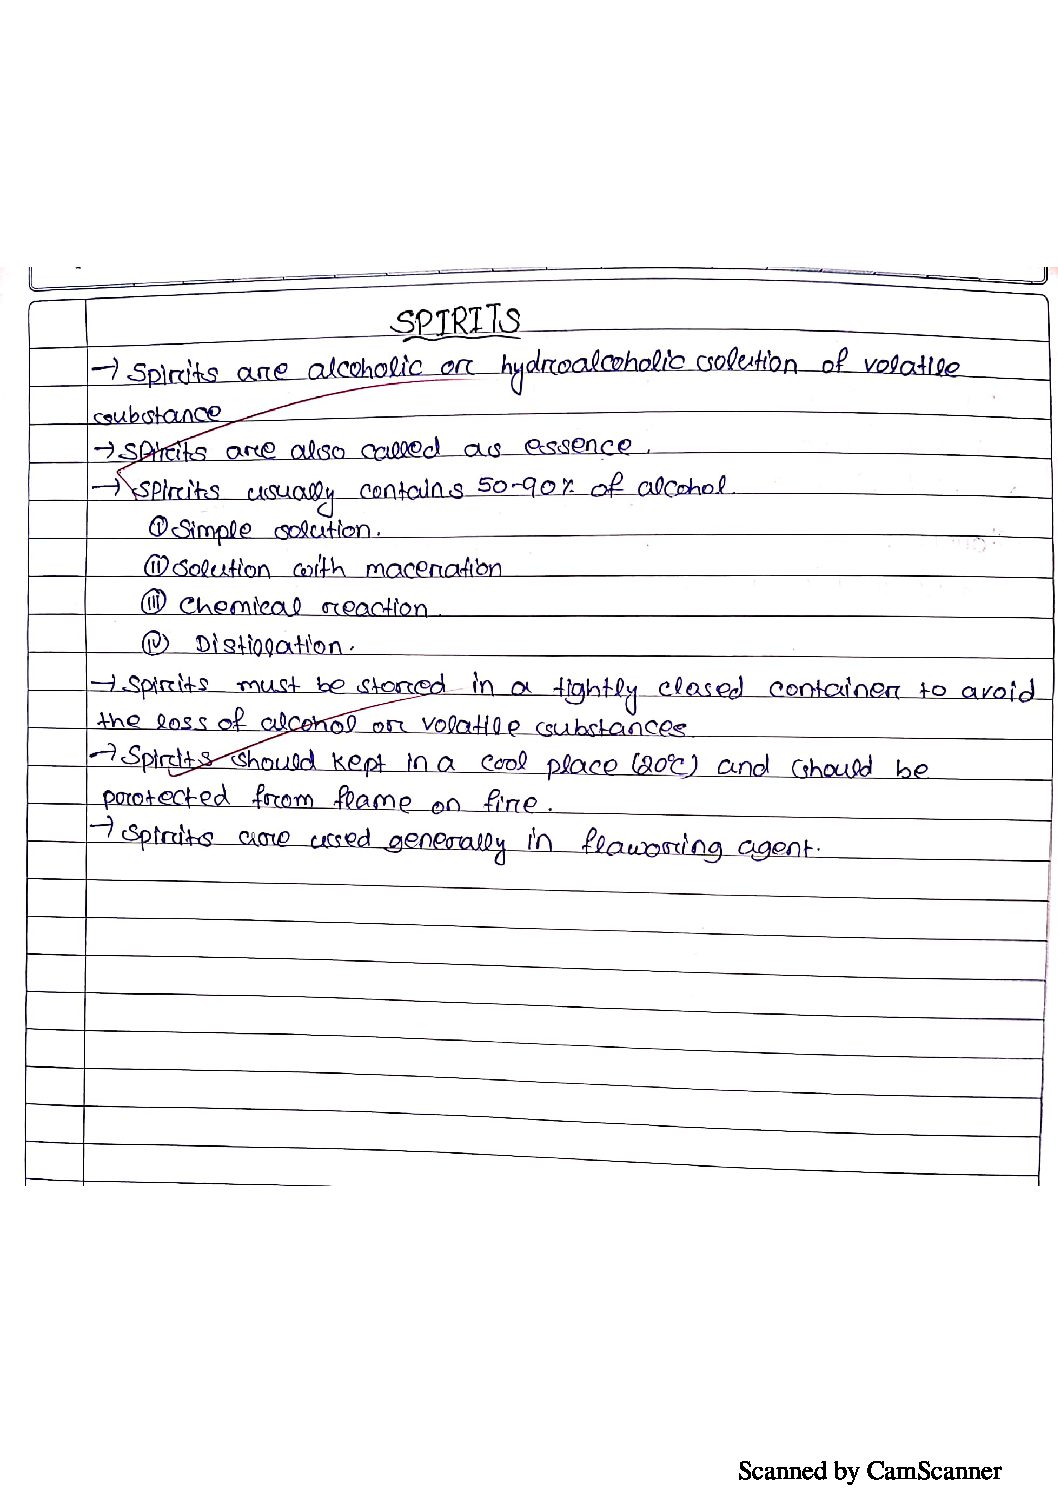 SPIRITS
→ Spirits are alcoholic or hydroalcoholic solution of volatile
substance
→ Spirits are also called as essence.
→ Spirits usually contains 50-90% of alcohol.
(i) Simple solution.
(ii) Solution with maceration
(iii) Chemical reaction
(iv) Distillation.
→ Spirits must be stored in a tightly closed container to avoid
the loss of alcohol or volatile substances
→ Spirits should kept in a cool place (20°C) and should be
protected from flame or fire.
→ Spirits are used generally in flavoring agent.
Scanned by CamScanner